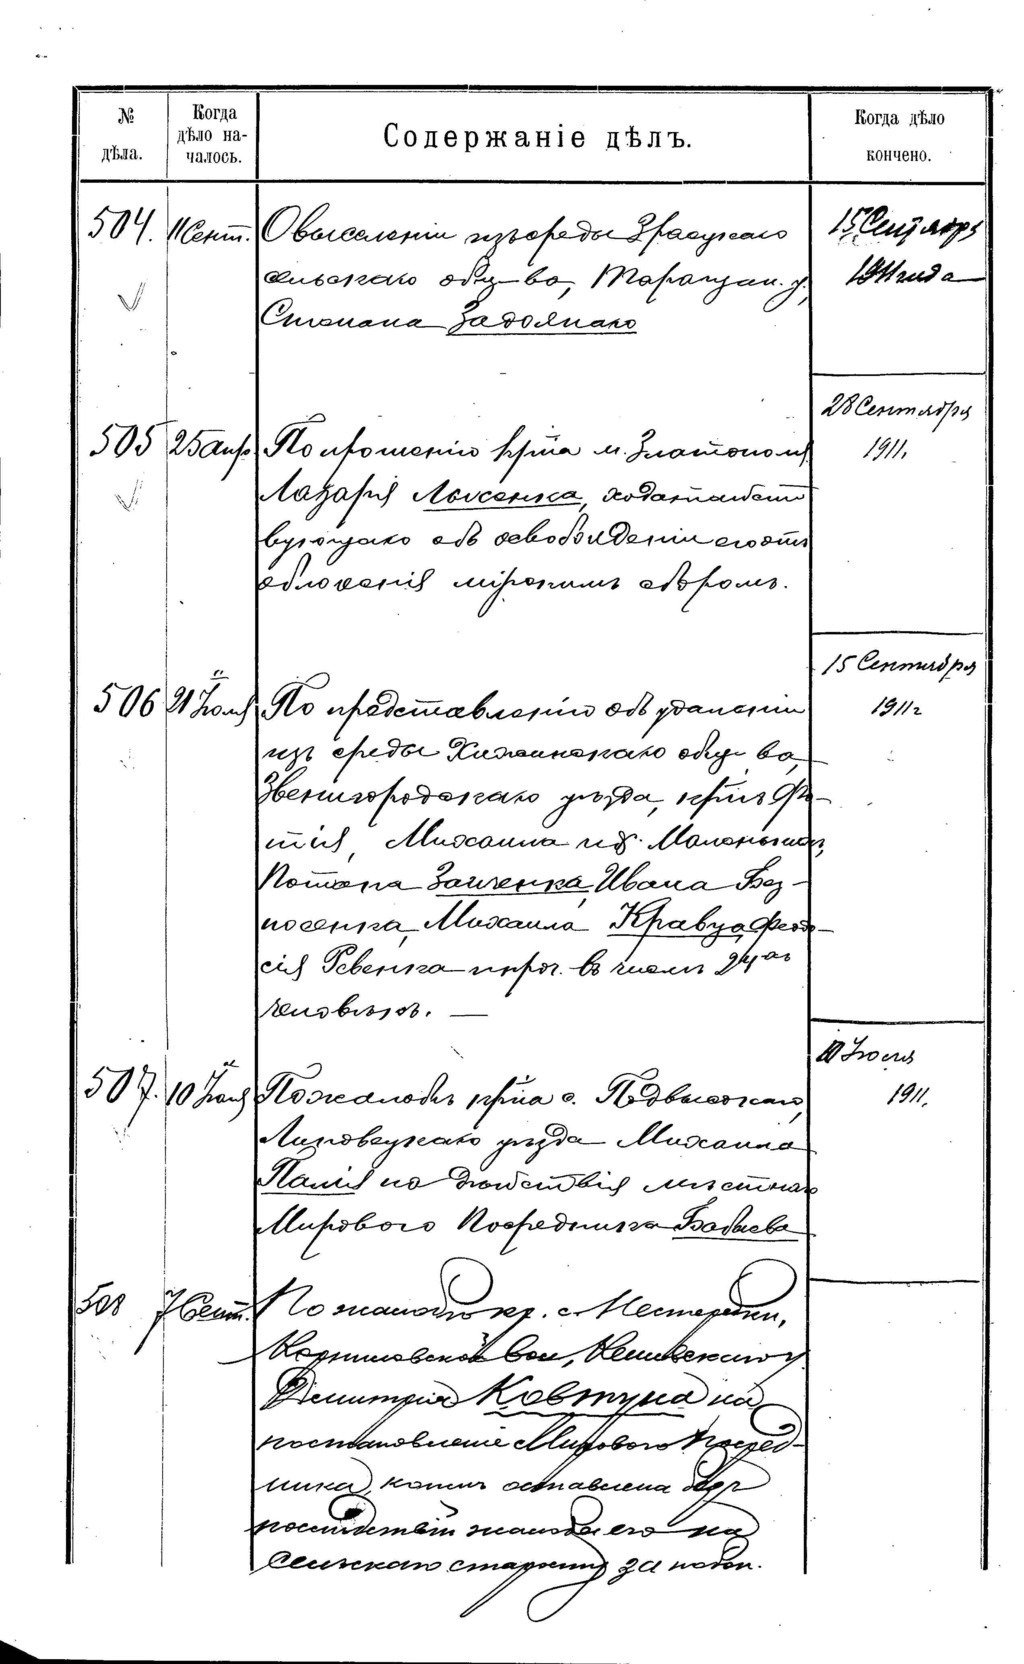 № дѣла.
Когда дѣло на-
чалось.
Содержаніе дѣлъ.
Когда дѣло
кончено.
504. 11 Сент. О выселеніи изъ среды 15 Сентября
сельскаго общ-ва, Таращан. у. 1911 года
Степана Задоянаго
28 Сентября
505 25 апр. По прошенію кр-на м. Златополя 1911.
Лазаря Лысенка, ходатайст
вующаго объ освобожденіи его отъ
обложенія мірскимъ сборомъ.
15 Сентября
506 21 Іюля По представленію объ удаленіи 1911 г
изъ среды Хижинскаго общ-ва,
Звенигородскаго уѣзда, кр-нъ Фо-
тія, Михаила и
Потапа Заиченка, Ивана Без-
носенка, Михаила Кравца, Феодо-
сія Ревенка и проч. въ числѣ 24-хъ
человѣкъ. —
10 Іюля
507. 10 Іюля По жалобѣ кр-на с. Подвысокаго, 1911.
Липовецкаго уѣзда Михаила
Палія на дѣйствія мѣстнаго
Мирового Посредника Бабаева
508 7 Сент. По жалобѣ кр. с. Нестеровки,
вол,
Димитрія Ковтуна на
постановленіе Мирового Посред-
ника, коимъ оставлена безъ
послѣдствій жалоба его на
сельскаго старосту за побои.